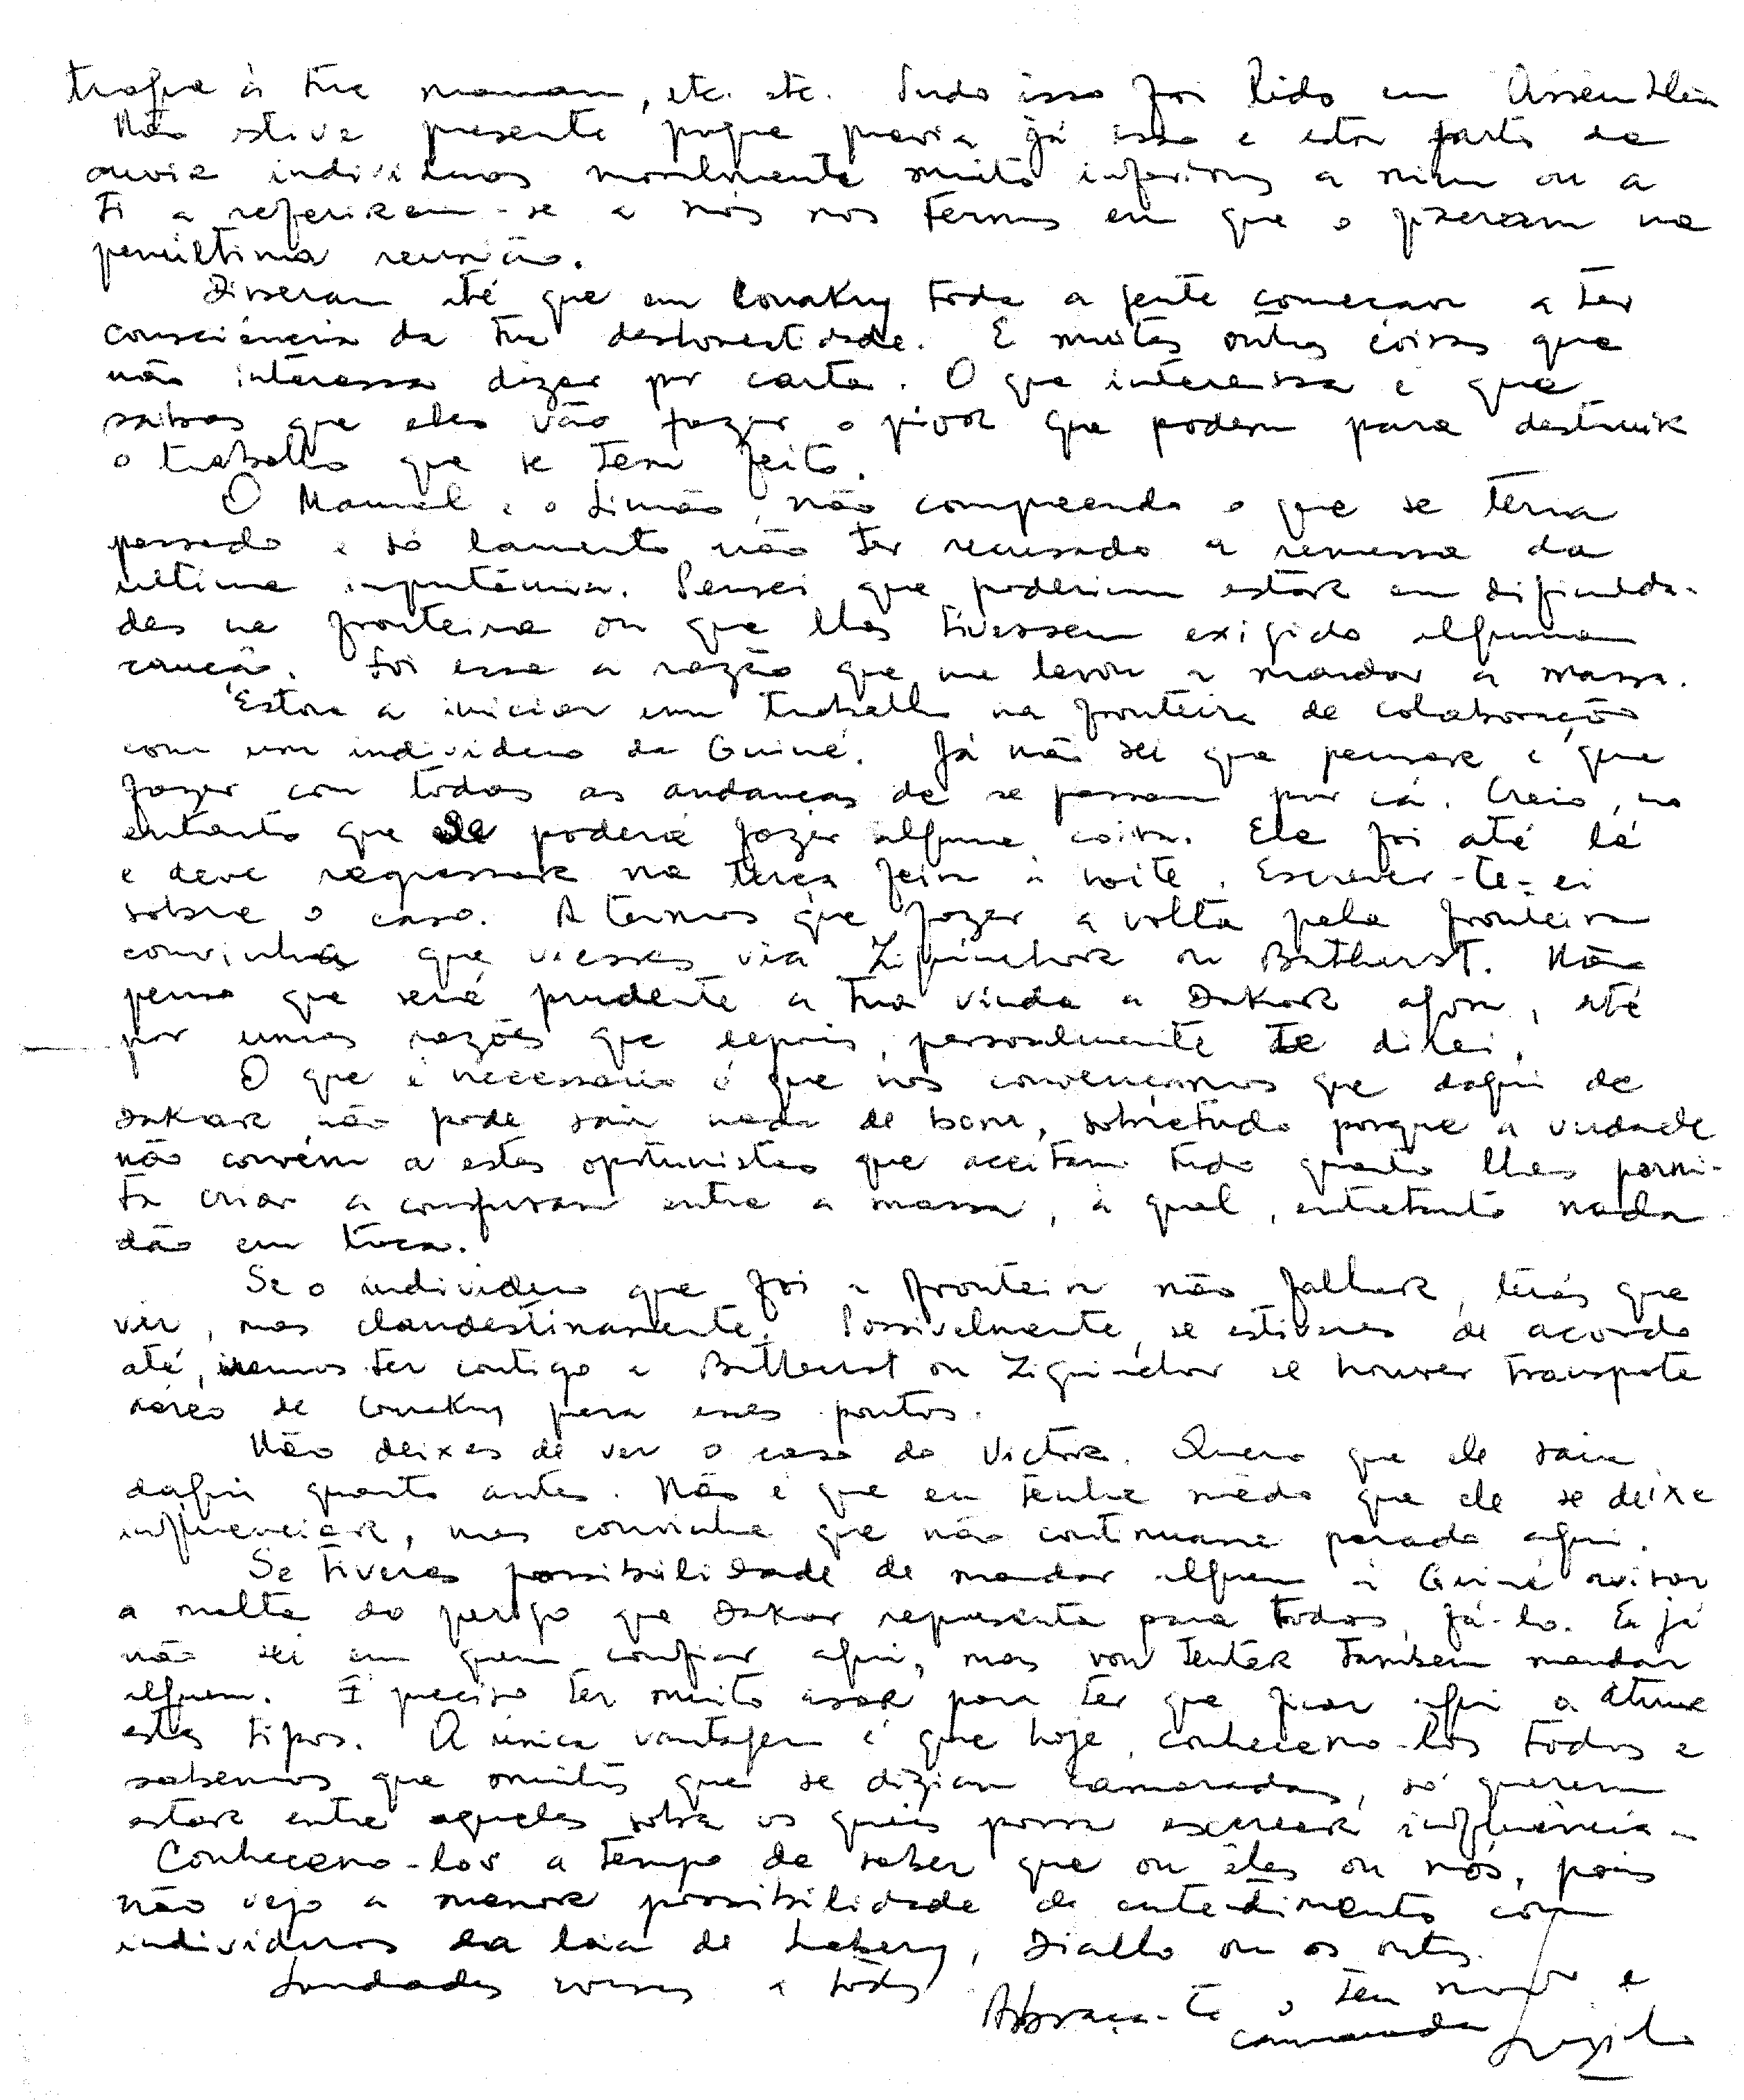 à tua maman, etc. etc. Tudo isso foi lido em Assembleia
Não estive presente porque previa já isso e estou farto de
ouvir individuos moralmente muito inferiores a mim ou a
ti a referirem-se a nós nos termos em que o fizeram na
penúltima reunião.
Disseram até que em Conakry toda a gente começava a ter
consciência da tua deshonestidade. E muitas outras coisas que
não interessa dizer por carta. O que interessa é que
saibas que eles vão fazer o pior que podem para destruir
o trabalho que se tem feito.
O Manuel e o Simão, não compreendo o que se teria
passado e só lamento não ter recusado a remessa da
ultima importância. Pensei que poderiam estar em dificulda-
des na fronteira ou que lhes tivessem exigido alguma
caução. Foi essa a razão que me levou a mandar a massa.
Estou a iniciar um trabalho na fronteira de colaboração
com um individuo da Guiné. Já não sei que pensar e que
fazer com todas as andanças de se passam por cá. Creio, no
entanto que ele poderá fazer alguma coisa. Ele foi até lá
e deve regressar na terça feira à noite. Escrever-te-ei
sobre o caso. A termos que fazer a volta pela fronteira
convinha que viesses via Ziguinchor ou Bathurst. Não
penso que será prudente a tua vinda a Dakar agora, até
por umas razões que depois, personalmente te direi.
O que é necessario é que nos convençamos que daqui de
Dakar não pode sair nada de bom, sobretudo porque a verdade
não convém a estes oportunistas que aceitam tudo quanto lhes permi-
ta criar a confusão entre a massa, à qual, entretanto nada
dão em troca.
Se o individuo que foi à fronteira não falhar, terás que
vir, mas clandestinamente. Possivelmente, se estiveres de acordo
até, iremos ter contigo a Bathurst ou Ziguinchor se houver transporte
aéreo de Conakry para esses pontos.
Não deixes de ver o caso do Victor. Quero que ele saia
daqui quanto antes. Não é que eu tenha mêdo que ele se deixe
influenciar, mas convinha que não continuasse parado aqui.
Se tiveres possibilidade de mandar alguem à Guiné avisar
a malta do perigo que Dakar representa para todos, fá-lo. Eu já
não sei em quem confiar aqui, mas vou tentar tambem mandar
alguem. É preciso ter muito azar para ter que ficar aqui a aturar
estes tipos. A única vantagem é que hoje, conhecemo-los todos e
sabemos que muitos que se diziam camaradas, só querem
estar entre aqueles sobre os quais possa exercer influência.
Conhecemo-los a tempo de saber que ou êles ou nós, pois
não vejo a menor possibilidade de entendimento com
individuos da laia de Labery, Diallo ou os outros.
Saudades nossas a todos
Abraça-te o teu e
camarada